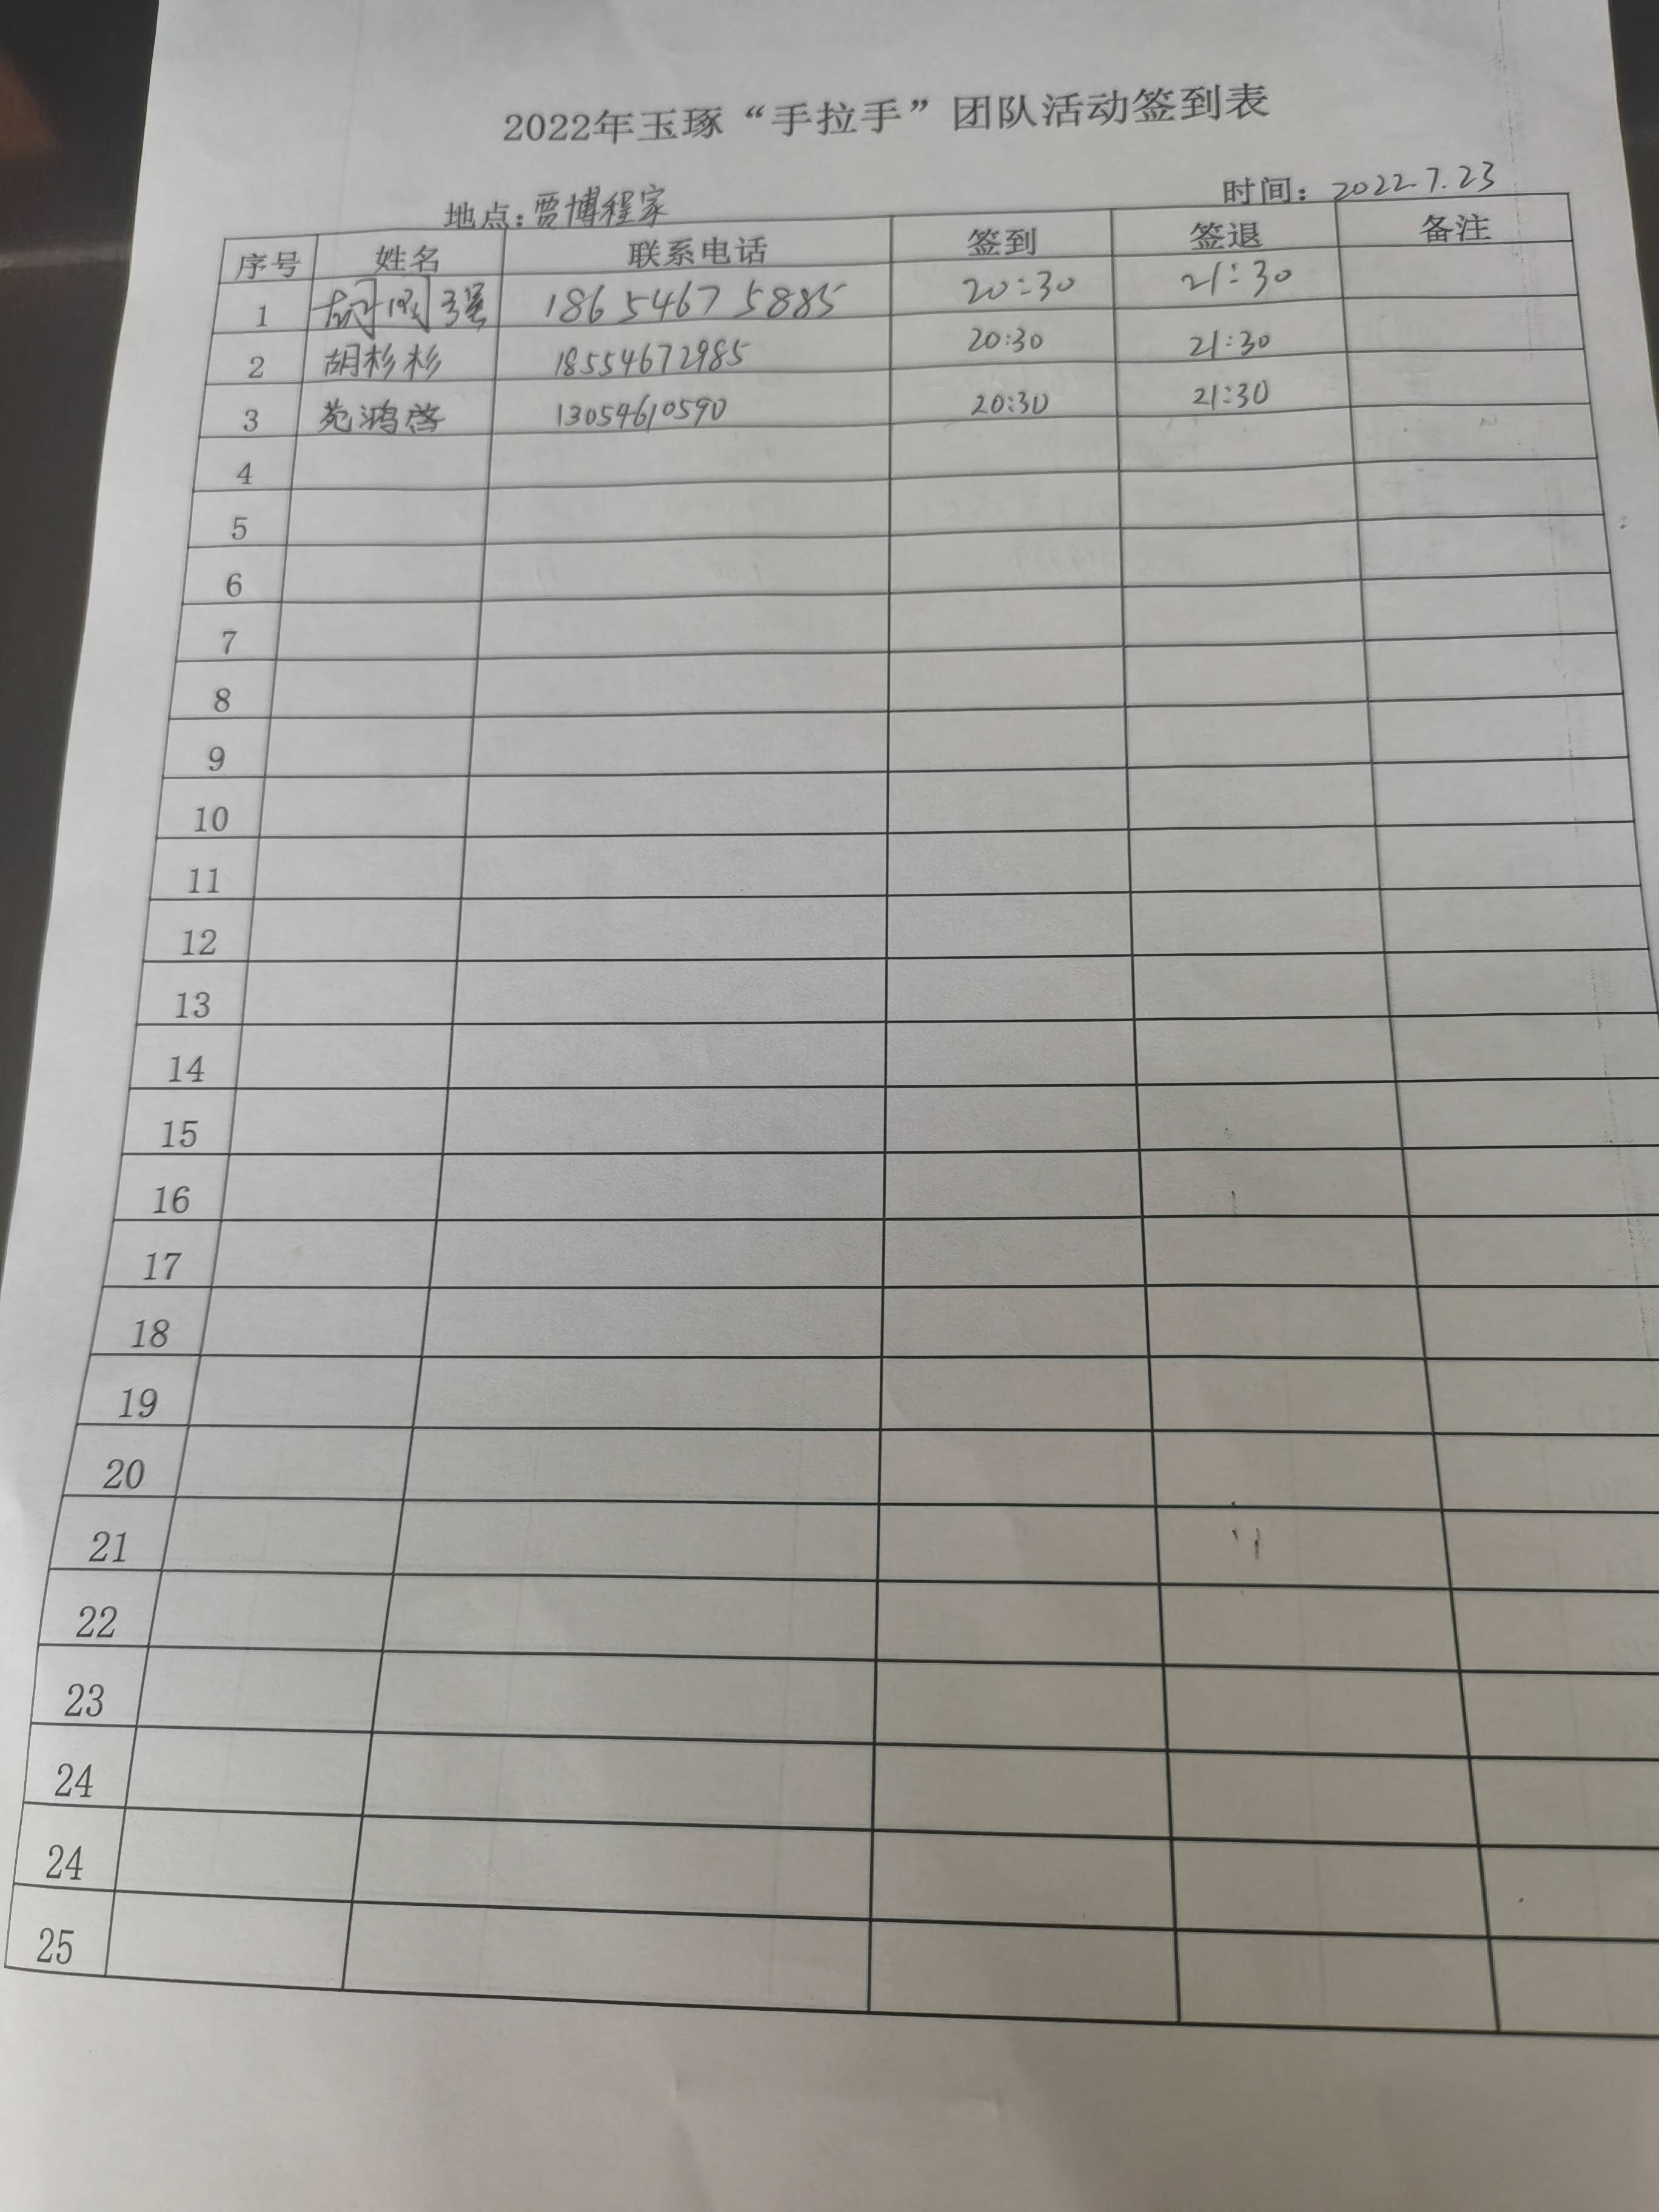 2022年玉琢“手拉手”团队活动签到表
地点：贾博程家 时间：2022.7.23
序号 姓名 联系电话 签到 签退 备注
1 强 18654675885 20:30 21:30
2 胡杉杉 18554672985 20:30 21:30
3 苑鸿啓 13054610590 20:30 21:30
4
5
6
7
8
9
10
11
12
13
14
15
16
17
18
19
20
21
22
23
24
24
25